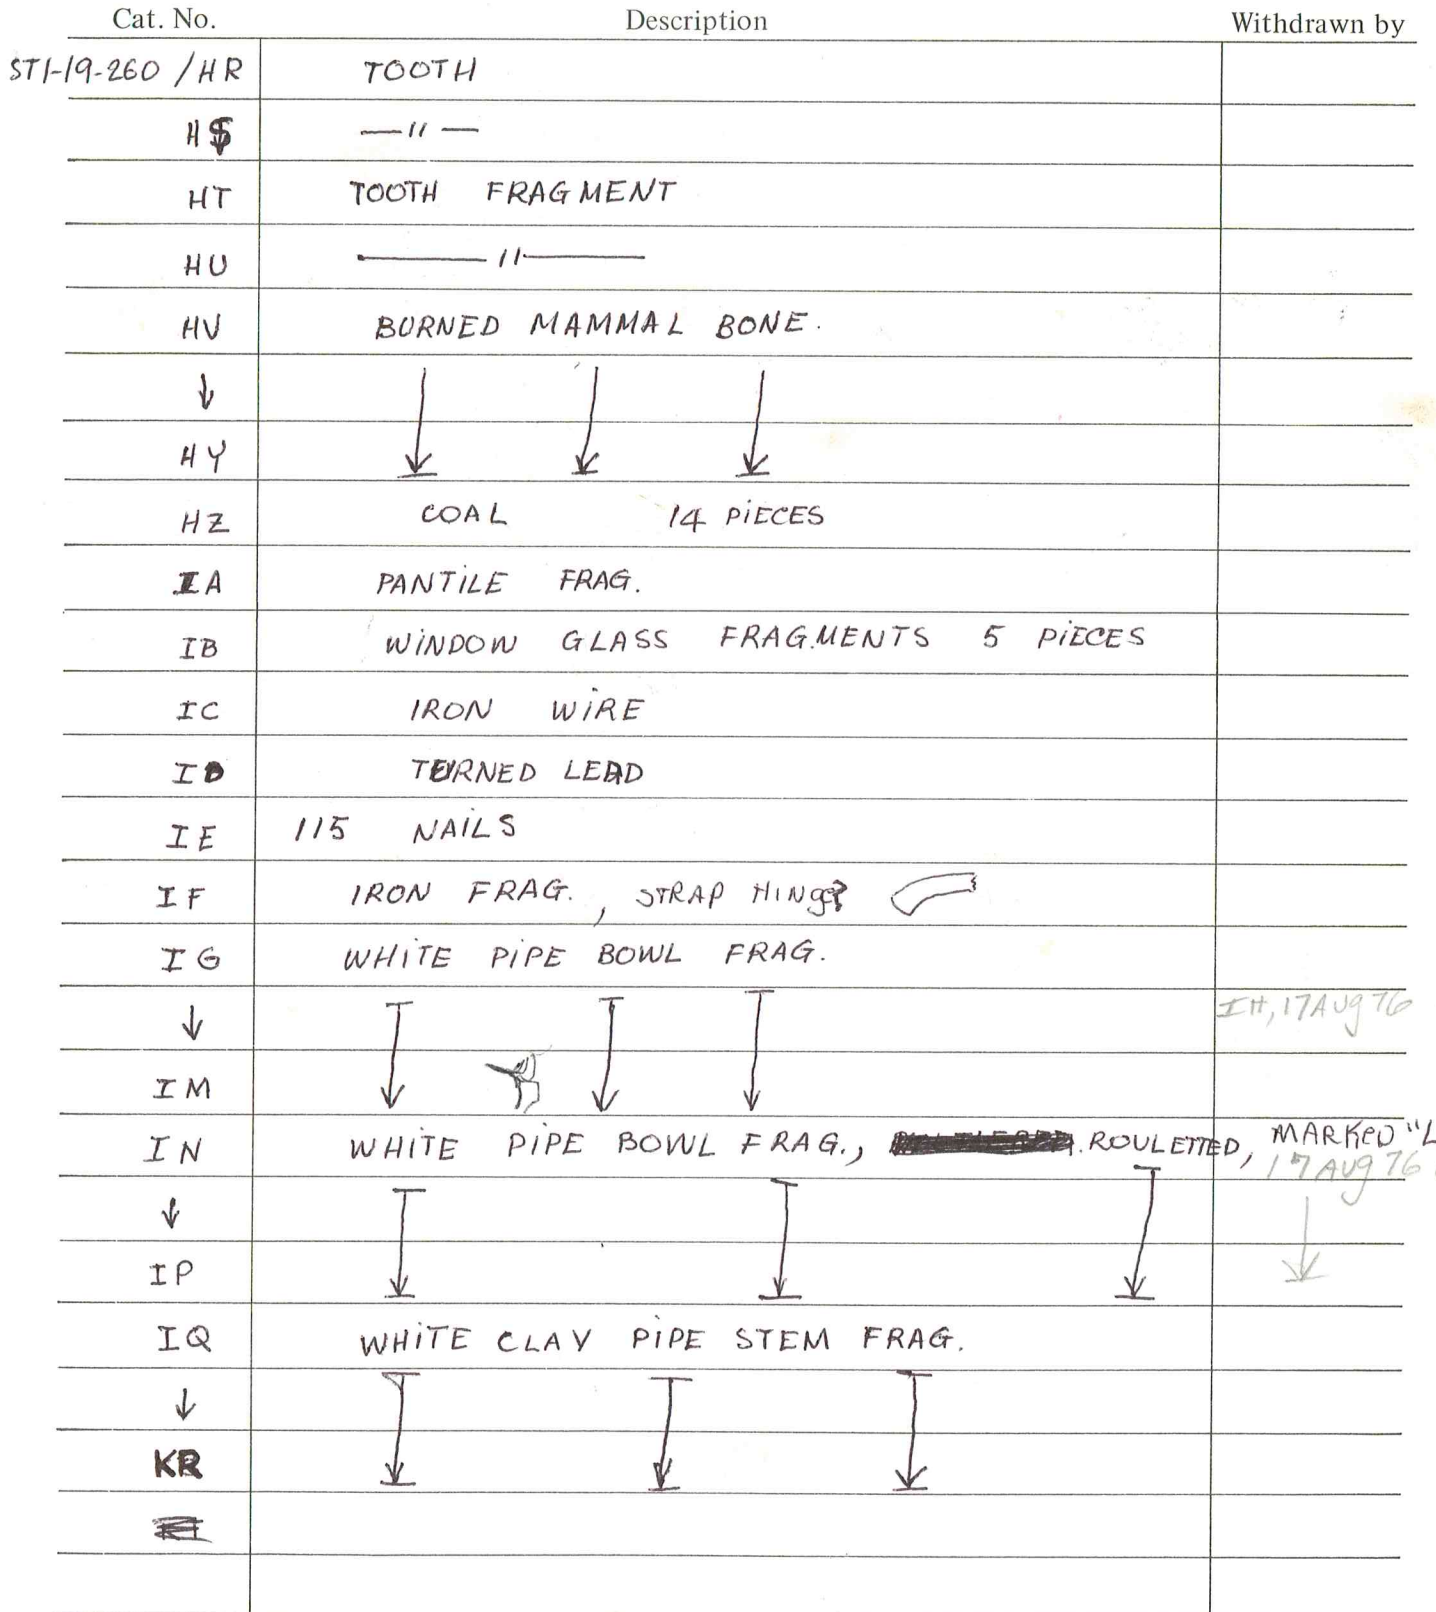 Cat. No. Description Withdrawn by
ST1-19-260 / HR TOOTH
HS —〃—
HT TOOTH FRAGMENT
HU —〃—
HV BURNED MAMMAL BONE.
↓
HY
HZ COAL 14 PiECES
IA PANTiLE FRAG.
IB WiNDOW GLASS FRAGMENTS 5 PiECES
IC IRON WiRE
ID TURNED LEAD
IE 115 NAiLS
IF IRON FRAG., STRAP HINge?
IG WHiTE PiPE BOWL FRAG.
↓ IH, 17 AUg 76
IM
IN WHiTE PiPE BOWL FRAG., ROULETTED, MARKED "L
17 AUg 76
↓
IP
IQ WHiTE CLAY PiPE STEM FRAG.
↓
KR